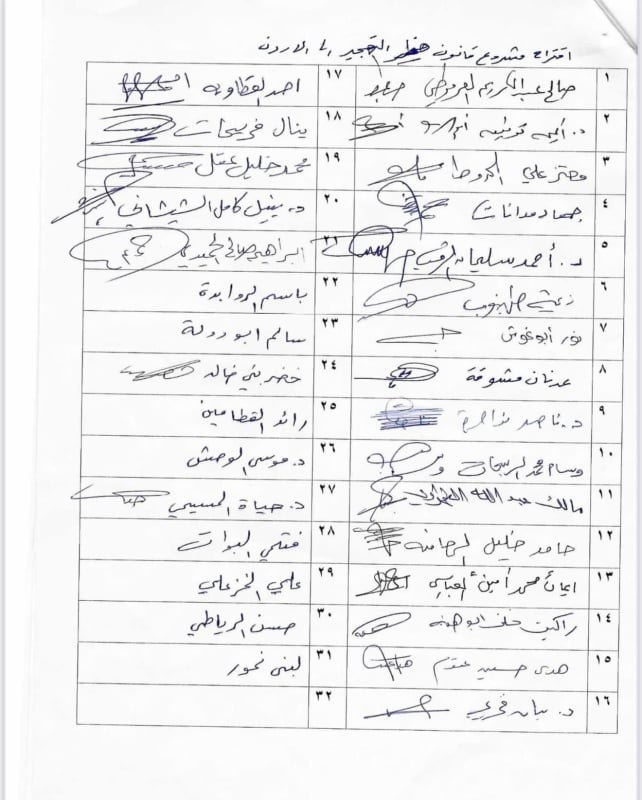 اقتراح مشروع قانون حظر التهجير الى الاردن
١ صالح عبدالكريم العرموطي
٢ د. ايمه
٣ معتز علي
٤ جهاد مدانات
٥ د. أحمد سليمان الرقب
٦
٧ نور أبوغوش
٨ عدنان مشوقة
٩ د. ناصر نواصرة
١٠ وسام محمد الربيحات
١١ مالك عبد الله
١٢ حامد خليل الرحامنه
١٣ ايمان محمد أمين العباسي
١٤ راكين خلف ابو هنيه
١٥ هدى حسين عتوم
١٦ د. بيان
١٧ احمد القطاونه
١٨ ينال فريحات
١٩ محمد خليل عقل
٢٠ د. نبيل كامل الشيشاني
٢١ ابراهيم صالح الحميدي
٢٢ باسم الروابدة
٢٣ سالم ابو دولة
٢٤ خضر بني خالد
٢٥ رائد القطامين
٢٦ د. موسى الوحش
٢٧ د. حياة المسيمي
٢٨ فتحي البوات
٢٩ علي الخزعلي
٣٠ حسن الرياطي
٣١ لبنى نمور
٣٢